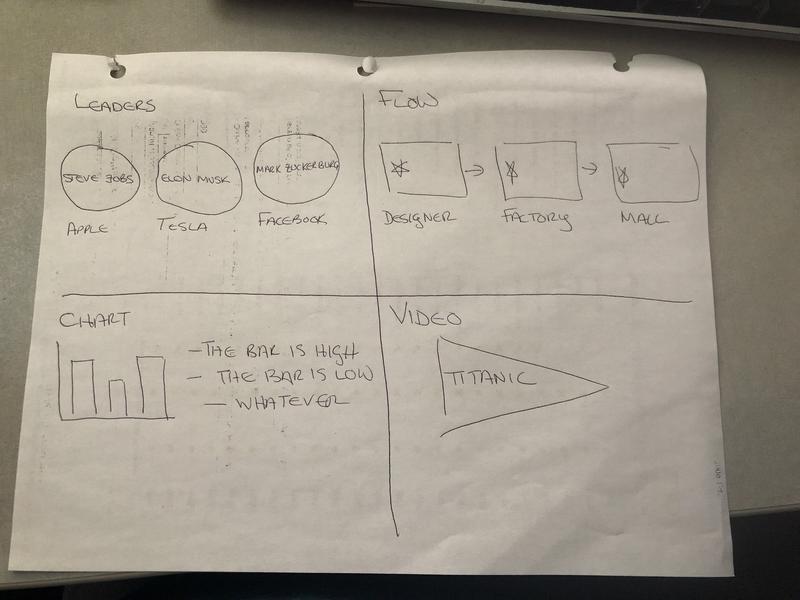 LEADERS
STEVE JOBS
ELON MUSK
MARK ZUCKERBURG
APPLE
TESLA
FACEBOOK
FLOW
DESIGNER
FACTORY
MALL
CHART
- THE BAR IS HIGH
- THE BAR IS LOW
- WHATEVER
VIDEO
TITANIC